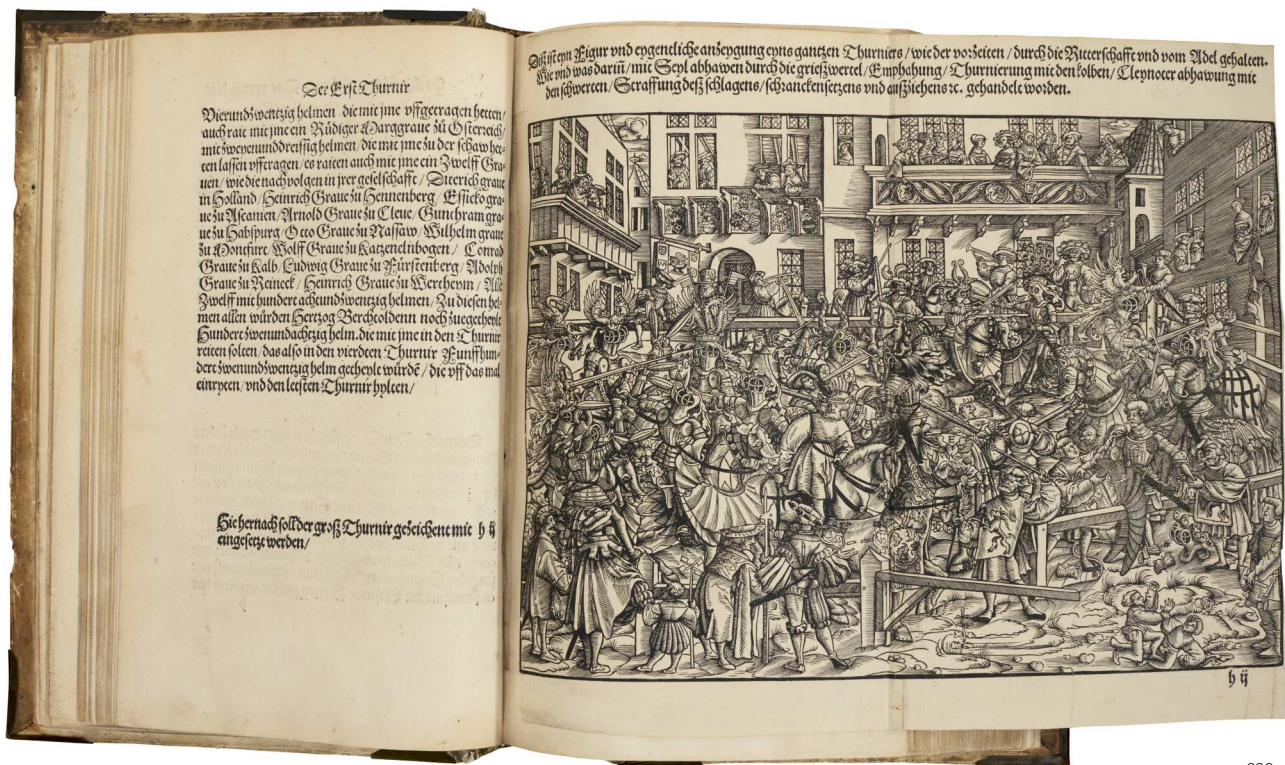 Der Erst Thurnir
Vierundzwentzig helmen die mit jme vffgetragen hetten /
auch rait mit jme ein Rüdiger Marggraue zů Osterreich /
mit zwenenunddreissig helmen / die mit jme zu der schaw het-
ten lassen vfftragen / es raiten auch mit jme ein Zwelff Gra-
uen / wie die nachuolgen in jrer geselschafft / Diterich graue
in Holland / Heinrich Graue zu Hennenberg / Essicko gra-
ue zu Ascanien / Arnold Graue zu Cleue / Gunthram gra-
ue zu Habspurg / Otto Graue zu Nassaw / Wilhelm graue
zu Montfurt / Wolff Graue zu Katzenelnbogen / Conrad
Graue zu Kalb / Ludwig Graue zu Fürstenberg / Adolph
Graue zu Reineck / Heinrich Graue zu Wertheym / Alle
Zwelff mit hundert achtundzwentzig helmen / Zu diesen hel-
men allen würden Hertzog Berchtoldenn noch zuegetheylt
Hundert zwenundachtzig helm. die mit jme in den Thurnir
reiten solten / das also in den vierdten Thurnir Funffhun-
dert zwenundzwentzig helm getheylt würdē / die vff das mal
einryten / vnd den letsten Thurnir hylten /
Hie hernach soll der groß Thurnir gezeichent mit h ij
eingesetzt werden /
Diß ist eyn Figur vnd eygentliche anzeygung eyns gantzen Thurniers / wie der vorzeiten / durch die Ritterschafft vnd vom Adel gehalten.
Wie vnd was dariñ / mit Seyl abhawen durch die grießwertel / Emphahung / Thurnierung mit den kolben / Cleynoter abhawung mit
den schwerten / Straffung deß schlagens / schranckensetzens vnd außziehens ꝛc. gehandelt worden.
h ij